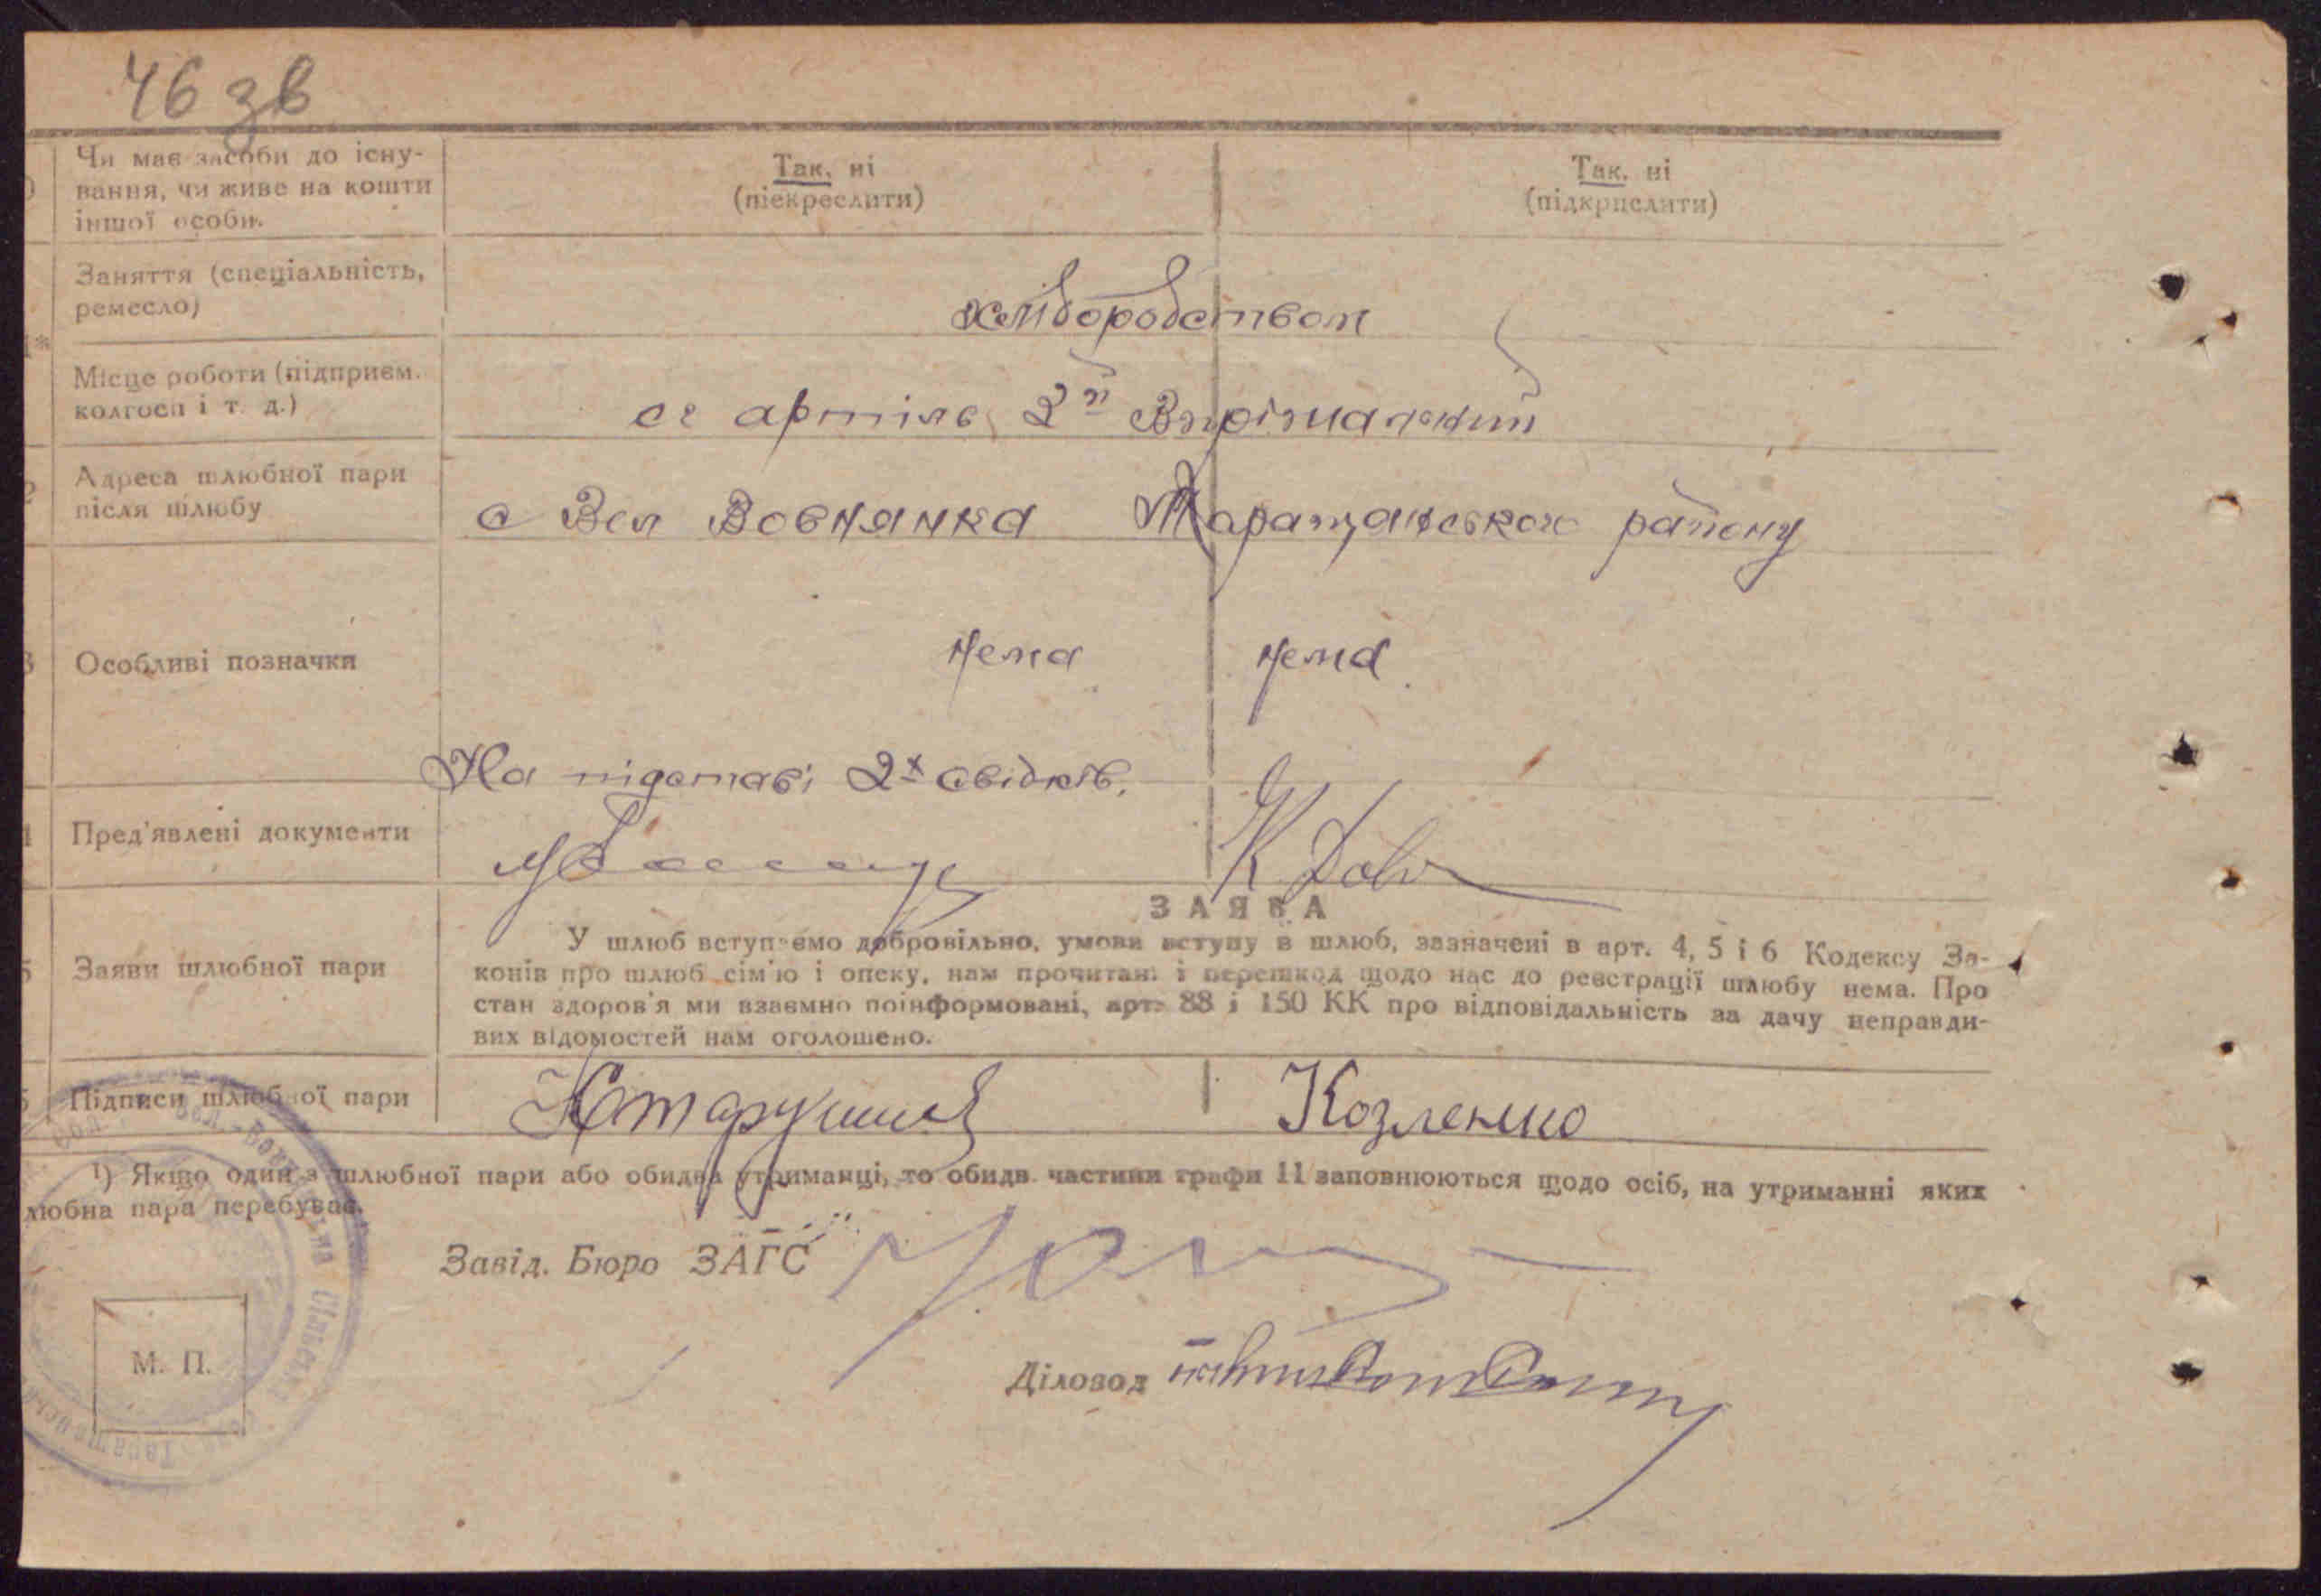 46 зв
Чи має засоби до існу-
вання, чи живе на кошти
іншої особи.
Так, ні
(піекреслити)
Так, ні
(підкрпслити)
Заняття (спеціальність,
ремесло)
хліборобством
Місце роботи (підприєм.
колгосп і т. д.)
сг артіль 2й
Адреса шлюбної пари
після шлюбу
с Вел Вовнянка Таращанського району
Особливі позначки
нема
нема
На підставі 2х свідків.
Пред'явлені документи
ЗАЯВА
Заяви шлюбної пари
У шлюб вступаємо добровільно, умови вступу в шлюб, зазначені в арт. 4, 5 і 6 Кодексу За-
конів про шлюб сім'ю і опеку, нам прочитані і перешкод щодо нас до реєстрації шлюбу нема. Про
стан здоров'я ми взаємно поінформовані, арт. 88 і 150 КК про відповідальність за дачу неправди-
вих відомостей нам оголошено.
Підписи шлюбної пари
Козленко
¹) Якщо один з шлюбної пари або обидва утриманці, то обидв. частини графи 11 заповнюються щодо осіб, на утриманні яких
любна пара перебуває.
Завід. Бюро ЗАГС
М. П.
Діловод